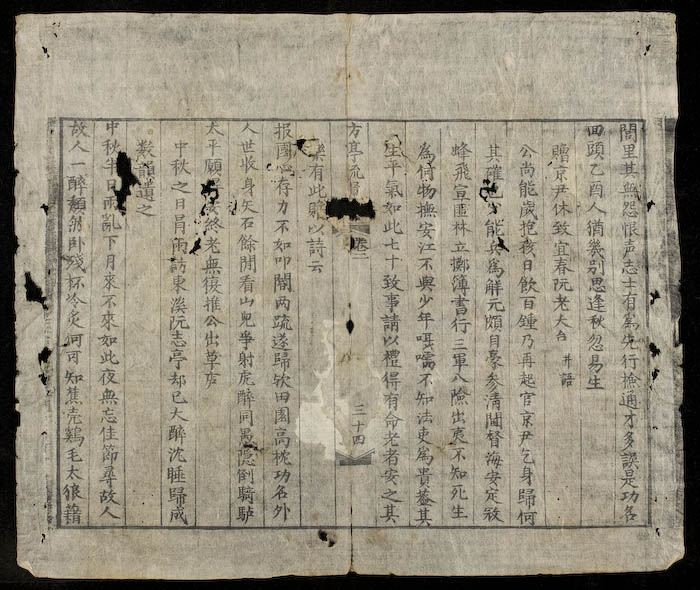 閭里其無怨恨声志士有為先行撿通才多誤是功名
回頭乙酉人猶幾別思逢秋忽易生
贈京尹休致宜春阮老大台 并語
公尚能歲抱孩日飲百鍾乃再起官京尹乞身歸何
其確也公能兵為解元頗自豪参清閫督海安定祓
蜂飛宣匿林立擲簿書行三軍八險出夷不知死生
為何物撫安江不與少年嗫嚅不知法吏為貴葢其
生平氣如此七十致事請以禮得有命老者安之其
方亭
卷三
三十四
樂有此贈以詩云
报國心存力不如叩閽两疏遂歸欤田園高枕功名外
人世收身矢石餘閒看山兒爭射虎醉同愚隱倒騎驴
太平願終老無復推公出草庐
中秋之日冒雨訪東溪阮志亭却已大醉沈睡歸成
数韻遺之
中秋半日雨亂下月來不來如此夜無忘佳節尋故人
故人一醉頹翁卧殘杯冷炙何可知蕉壳鷄毛太狼藉